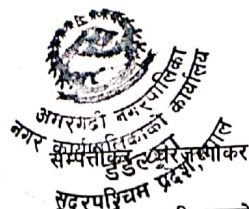 अमरगढी नगरपालिका
नगर कार्यपालिकाको कार्यालय
डडेल्धुरा
सम्पत्तीकर/घरजग्गाकर
सुदूरपश्चिम प्रदेश, नेपाल